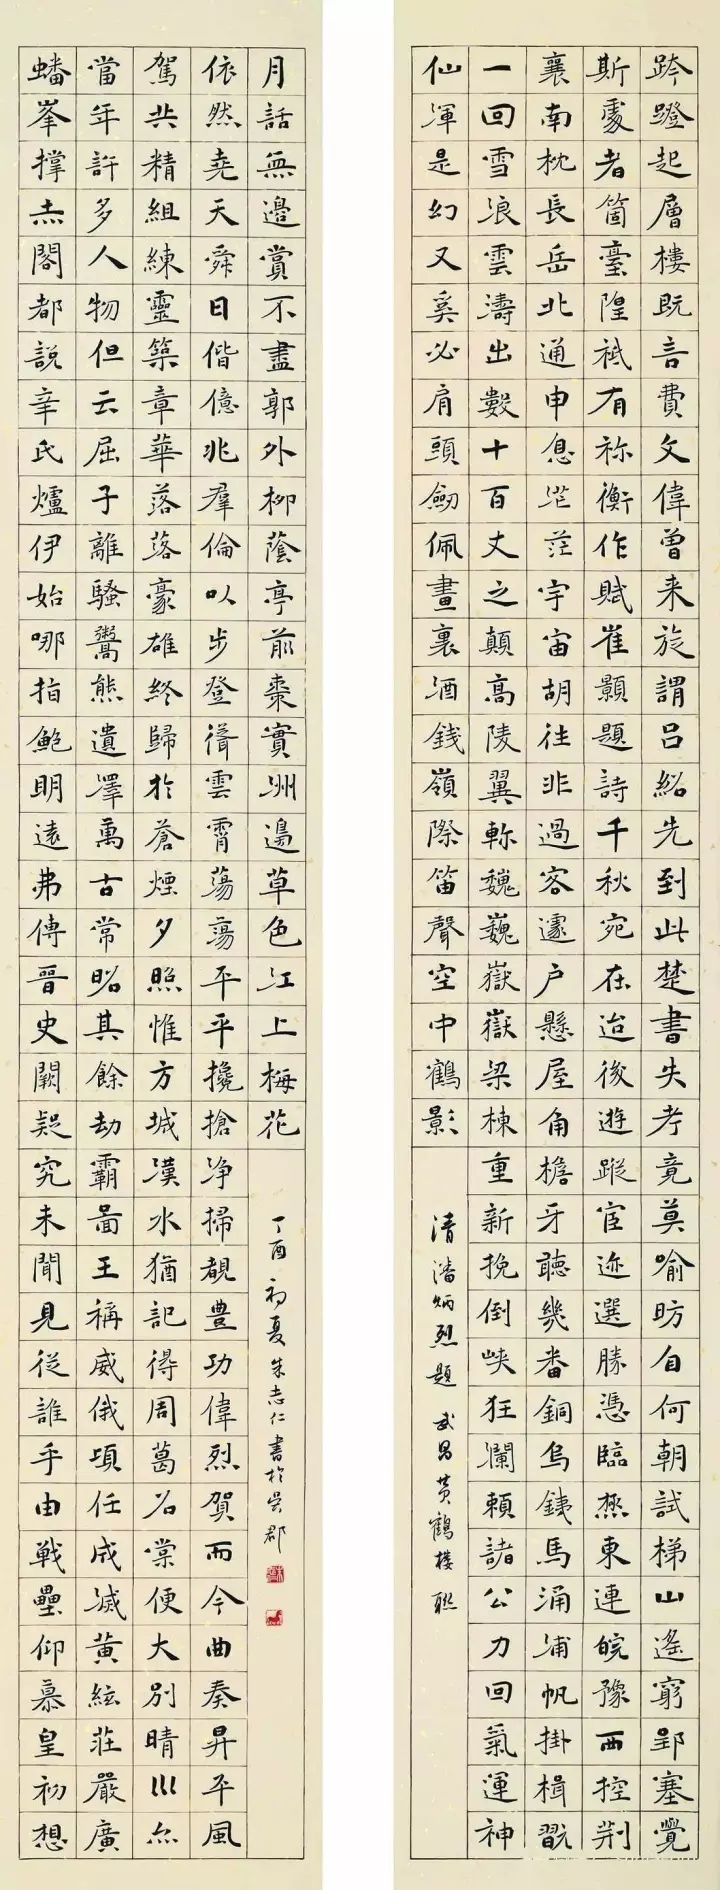 跨蹬起層樓既言費文偉曾来旋謂吕紹先到此楚書失考竟莫喻昉自何朝試梯山遙窮郢塞覺
斯處者箇臺隍祗有祢衡作賦崔顥題詩千秋宛在迨後遊蹤宦迹選勝憑臨㮣東連皖豫西控荆
襄南枕長岳北通申息茫茫宇宙胡往非過客遽户懸屋角檐牙聽幾番銅烏鉄馬涌浦帆掛楫翫
一回雪浪雲濤出數十百丈之顛高陵翼軫巍巍嶽嶽梁棟重新挽倒峡狂瀾賴諸公力回氣運神
仙渾是幻又奚必肩頭劒佩畫裏酒錢嶺際笛聲空中鶴影
清潘炳烈題武昌黄鶴樓聯
蟠峯撐杰閣都說辛氏爐伊始哪指鮑明遠弗傳晉史闕疑究未聞見從誰乎由戰壘仰慕皇初想
當年許多人物但云屈子離騷鬻熊遺澤萬古常昭其餘劫霸啚王稱威俄頃任成滅黃絃莊嚴廣
駕共精組練靈築章華落落豪雄終歸於蒼煙夕照惟方城漢水猶記得周葛召棠便大別晴川亦
依然堯天舜日偕億兆羣倫以步登聳雲霄蕩蕩平平攙搶净掃覩豊功偉烈賀而今曲奏昇平風
月話無邊賞不盡郭外柳蔭亭前棗實洲邊草色江上梅花
丁酉初夏朱志仁書於吳郡